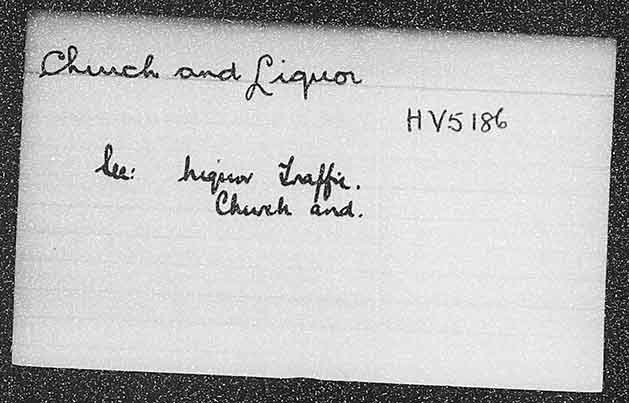 Church and Liquor
HV5186
See: Liquor Traffic.
Church and.